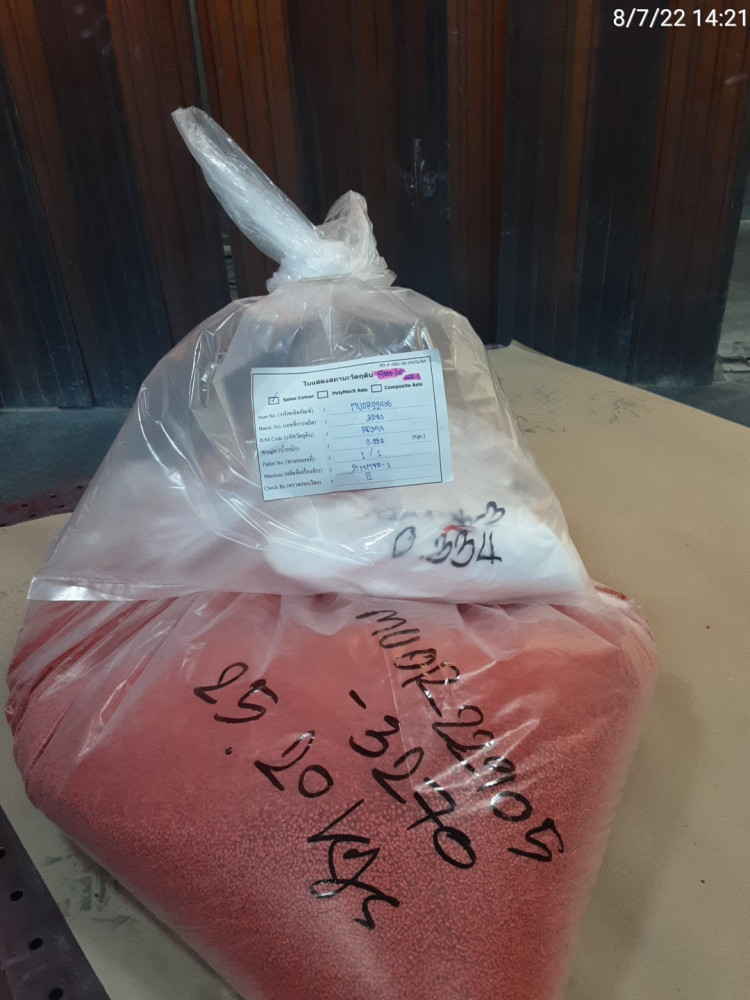 8/7/22 14:21
PD-F-
ใบแสดงสถานะวัตถุดิบ
✓ Sales Colour PolyMerit Asia Composite Asia
Item No. (รหัสผลิตภัณฑ์) : MUOR22905
Batch No. (เลขที่การผลิต) : 3270
R/M Code (รหัสวัตถุดิบ) :
Weight (น้ำหนัก) : (Kgs.)
Pallet No. (พาเลทเลขที่) : 1 / 1
Machine (ผลิตที่เครื่องจักร) :
Check By (ตรวจสอบโดย) :
0.334
MUOR-22905
-3270
25.20 Kg